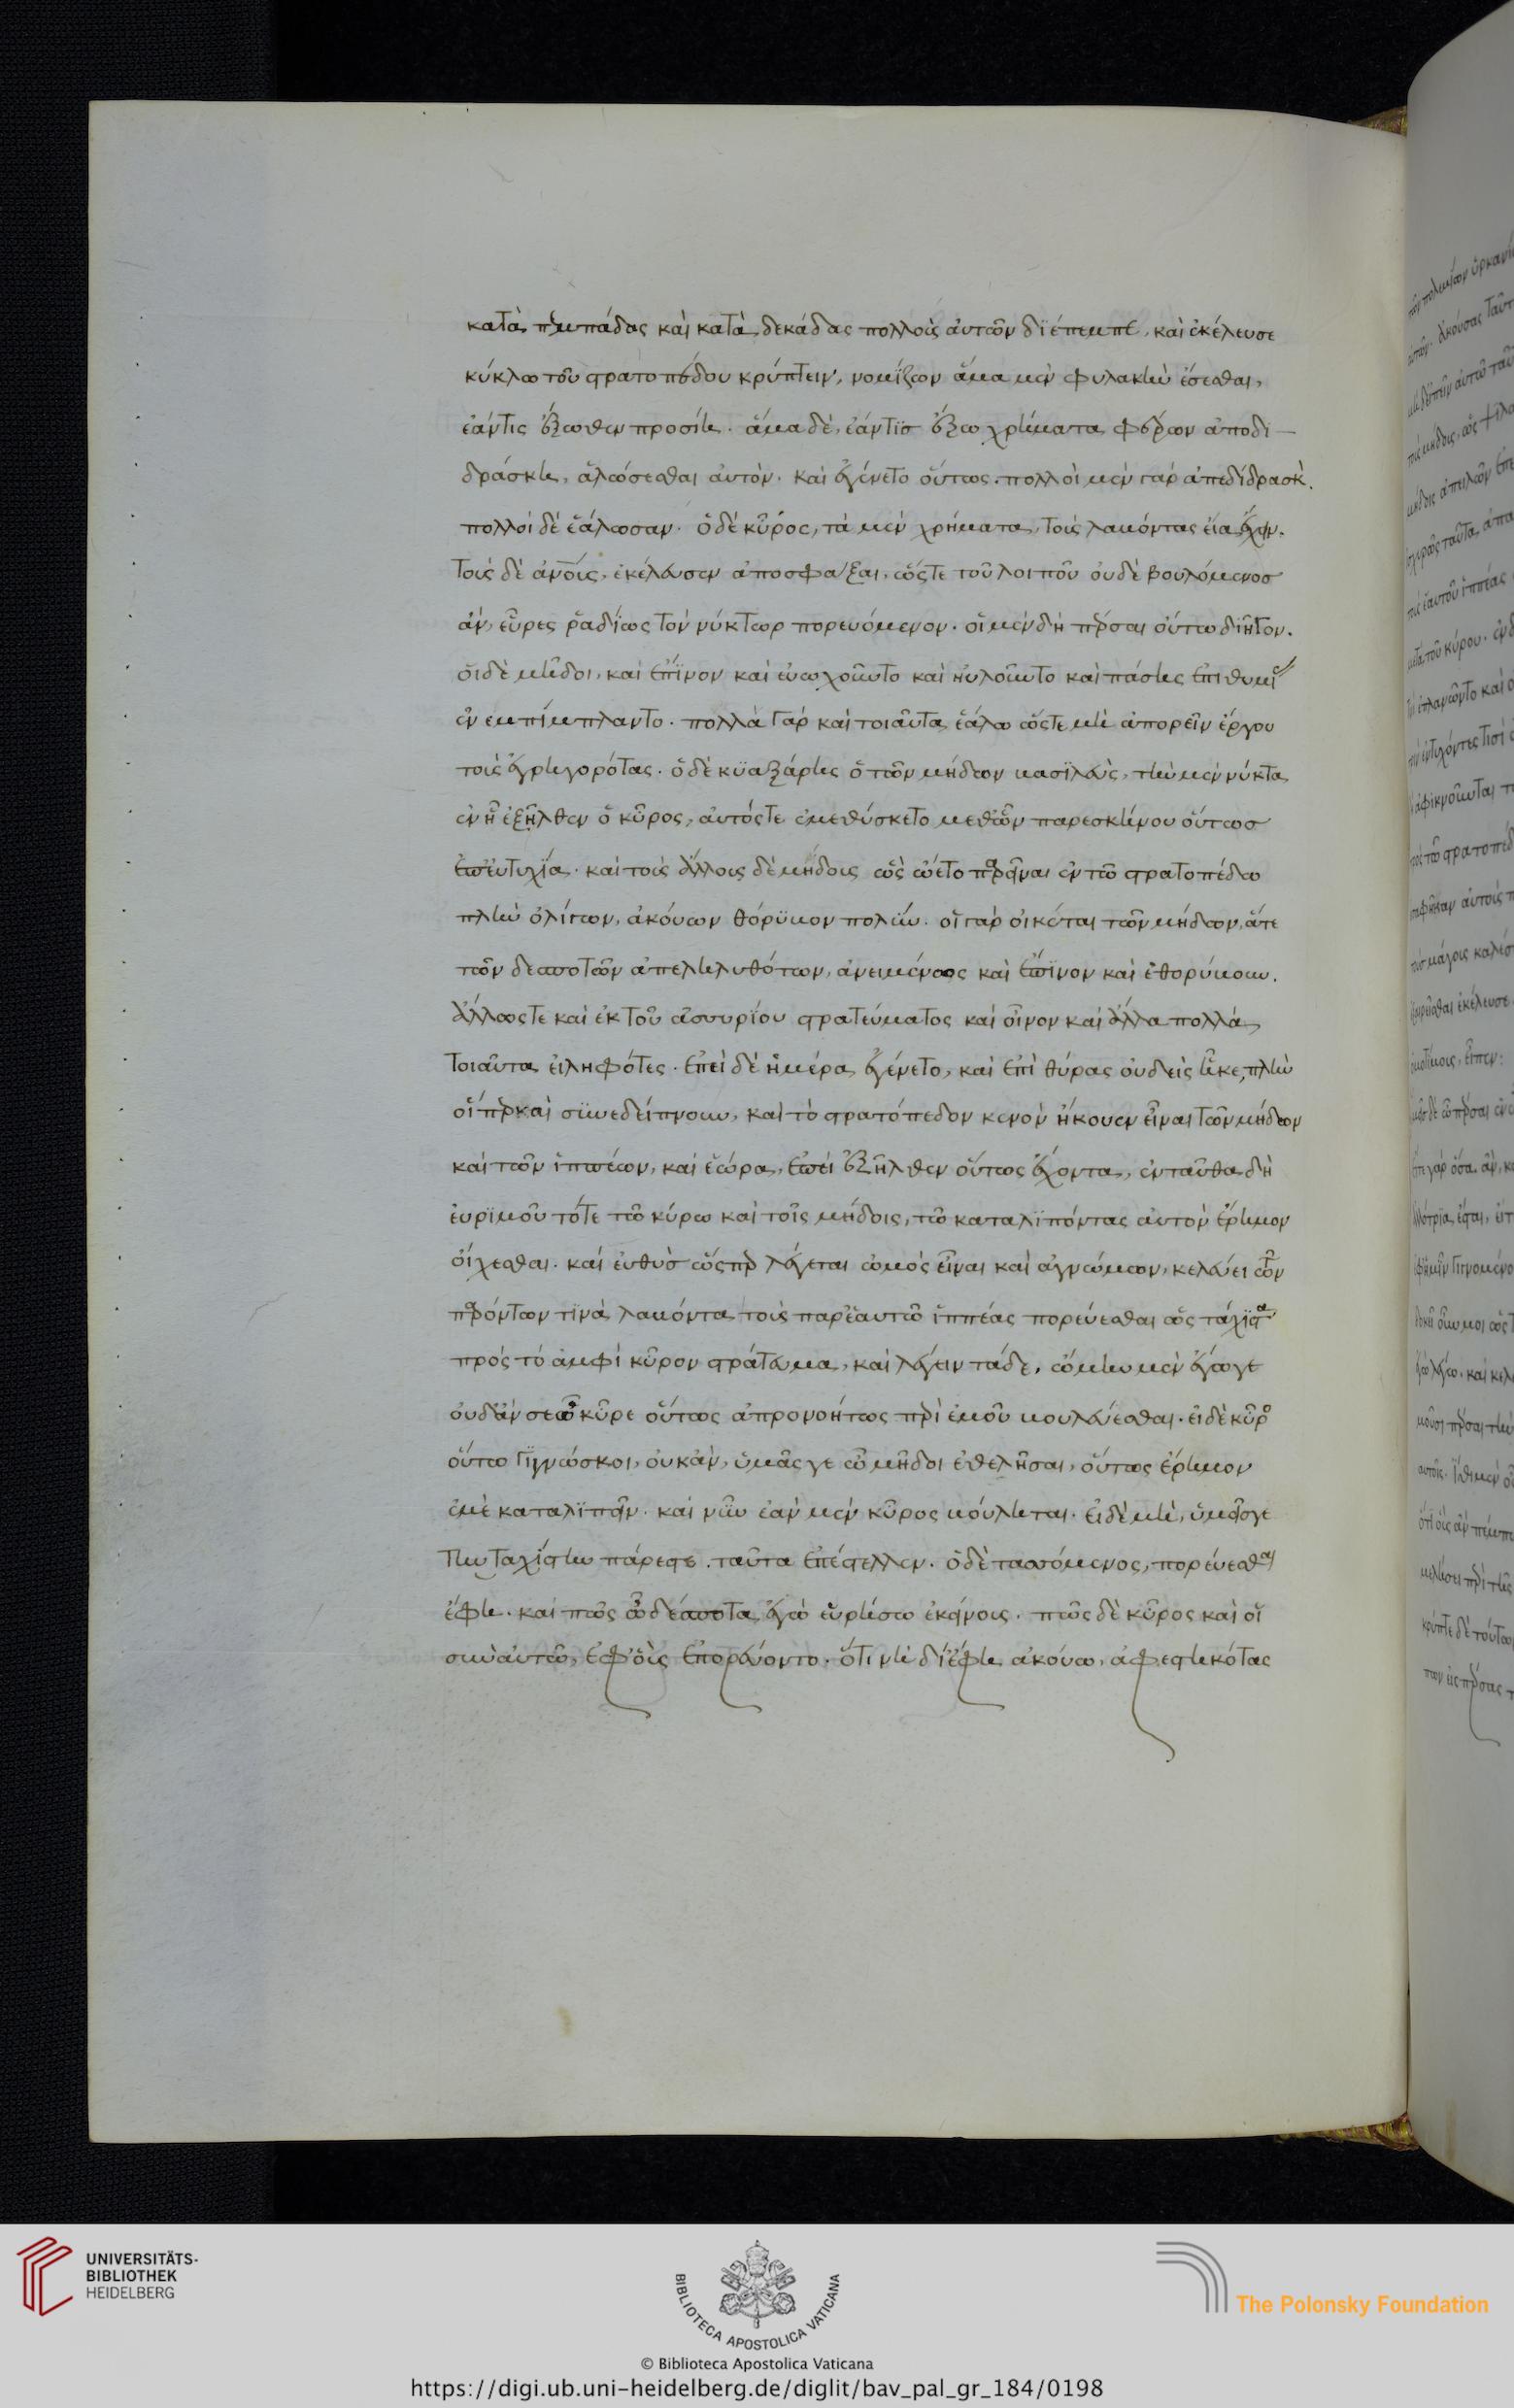 κατὰ πεμπάδας καὶ κατὰ δεκάδας πολλοὺς αὐτῶν διέπεμπε, καὶ ἐκέλευσε
κύκλω τοῦ στρατοπέδου κρύπτειν, νομίζων ἅμα μὲν φυλακὴν ἔσεσθαι,
ἐάν τις ἔξωθεν προσίη. ἅμα δὲ, ἐάν τισ ἔξω χρήματα φέρων ἀποδι–
δράσκη, ἁλώσεσθαι αὐτὸν. καὶ ἐγένετο οὕτως. πολλοὶ μὲν γὰρ ἀπεδίδρασκ.
πολλοὶ δὲ ἑάλωσαν. ὁ δὲ κῦρος, τὰ μὲν χρήματα, τοὺς λαβόντας εἴα ἔχειν.
τοὺς δὲ ἀνους, ἐκέλευσεν ἀποσφάξαι, ὥςτε τοῦ λοιποῦ οὐδὲ βουλόμενοσ
ἂν, εὗρες ῥαδίως τὸν νύκτωρ πορευόμενον. οἱ μὲν δὴ πέρσαι οὕτω διῆγον.
οἱ δὲ μῆδοι, καὶ ἔπινον καὶ εὐωχοῦντο καὶ ηὐλοῦντο καὶ πάσης ἐπιθυμί
ἐνεμπίμπλαντο. πολλὰ γὰρ καὶ τοιαῦτα, ἑάλω ὥςτε μὴ ἀπορεῖν ἔργου
τοὺς ἐγρηγορότας. ὁ δὲ κυαξάρης ὁ τῶν μήδων βασιλεὺς, τὴν μὲν νύκτα
ἐν ᾗ ἐξῆλθεν ὁ κῦρος, αὐτός τε ἐμεθύσκετο μεθ' ὧν παρεσκήνου οὕτωσ
ἐπ' εὐτυχία. καὶ τοὺς ἄλλους δὲ μήδους ὡς ὤετο παρεῖναι ἐν τῶ στρατοπέδω
πλὴν ὀλίγων, ἀκούων θόρυβον πολὺν. οἱ γὰρ οἰκέται τῶν μήδων, ἅτε
τῶν δεσποτῶν ἀπεληλυθότων, ἀνειμένως καὶ ἔπινον καὶ ἐθορύβουν.
ἄλλως τε καὶ ἐκ τοῦ ἀσσυρίου στρατεύματος καὶ οἶνον καὶ ἄλλα πολλὰ
τοιαῦτα εἰληφότες. ἐπεὶ δὲ ἡμέρα ἐγένετο, καὶ ἐπὶ θύρας οὐδεὶς ἧκε, πλὴν
οἵπερ καὶ συνεδείπνουν, καὶ τὸ στρατόπεδον κενὸν ἤκουεν εἶναι τῶν μήδων
καὶ τῶν ἱππέων, καὶ ἑώρα, ἐπεὶ ἐξῆλθεν οὕτως ἔχοντα, ἐνταῦθα δὴ
ἐβριμοῦτό τε τῶ κύρω καὶ τοῖς μήδοις, τῶ καταλιπόντας αὐτὸν ἔρημον
οἴχεσθαι. καὶ εὐθὺσ ὥςπερ λέγεται ὠμὸς εἶναι καὶ ἀγνώμων, κελεύει τῶν
παρόντων τινὰ λαβόντα τοὺς παρ' ἑαυτῶ ἱππέας πορεύεσθαι ὡς τάχιστα
πρὸς τὸ ἀμφὶ κῦρον στράτευμα, καὶ λέγειν τάδε, ὤμην μὲν ἔγωγε
οὐδ' ἄν σε ὦ κῦρε οὕτως ἀπρονοήτως περὶ ἐμοῦ βουλεύεσθαι. εἰ δὲ κῦρο
οὕτω γιγνώσκοι, οὐκ ἂν, ὑμᾶς γε ὦ μῆδοι ἐθελῆσαι, οὕτως ἔρημον
ἐμὲ καταλιπεῖν. καὶ νῦν ἐὰν μὲν κῦρος βούληται. εἰ δὲ μὴ, ὑμεῖς γε
τὴν ταχίστην πάρεστε. ταῦτα ἐπέστελλεν. ὁ δὲ ταττόμενος, πορεύεσθαι
ἔφη. καὶ πῶς ὦ δέσποτα, ἐγὼ εὑρήσω ἐκείνους. πῶς δὲ κῦρος καὶ οἱ
σὺν αὐτῶ, ἐφ' οὓς ἐπορεύοντο. ὅτι νὴ δί' ἔφη ἀκούω, ἀφεστηκότας
UNIVERSITÄTS-
BIBLIOTHEK
HEIDELBERG
BIBLIOTECA APOSTOLICA VATICANA
The Polonsky Foundation
© Biblioteca Apostolica Vaticana
https://digi.ub.uni-heidelberg.de/diglit/bav_pal_gr_184/0198